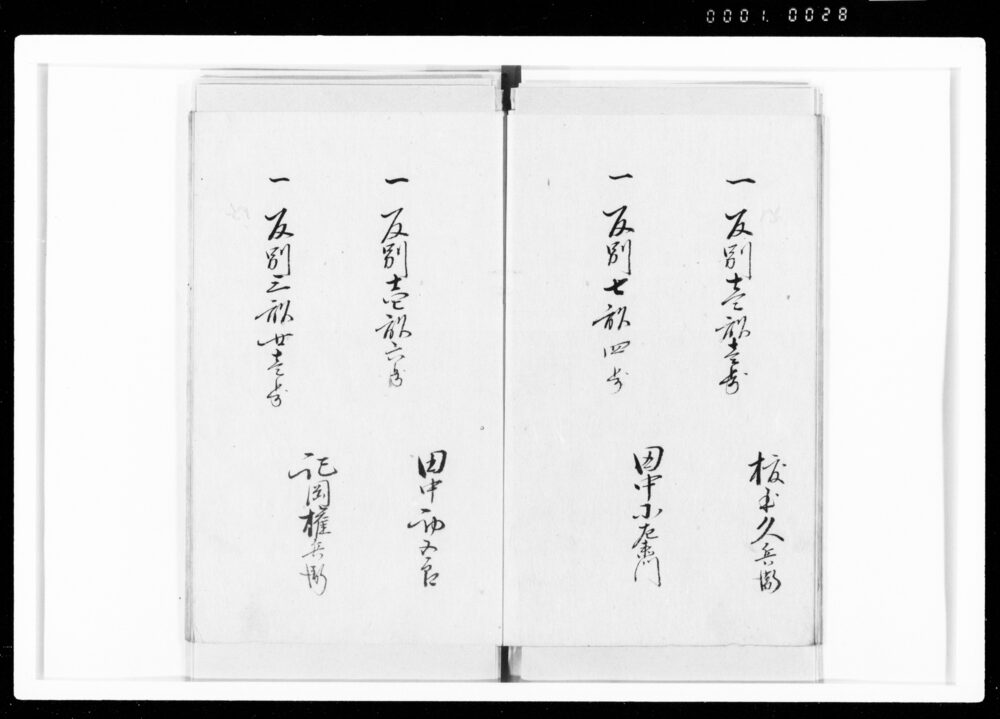 0001.0028
一 反別壱畝壱歩
久兵衛
一 反別七畝四歩
田中小左衛門
一 反別壱畝六歩
田中
一 反別三畝廿壱歩
岡権兵衛